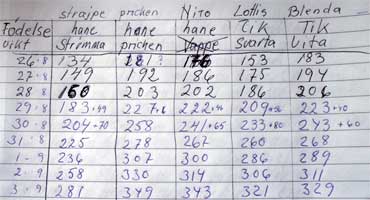 strajpe prichen Nito Lottis Blenda
födelse hane hane hane Tik Tik
vikt Strimma prichen Svarta vita
26.8 134 153 183
27.8 149 192 186 175 194
28.8 160 203 202 186 206
29.8 183 222 209 223
30.8 204+70 258 241/65 233+80 243+60
31.8 225 278 267 260 268
1-9 236 307 300 286 289
2.9 258 330 314 306 311
3.9 281 349 343 321 329